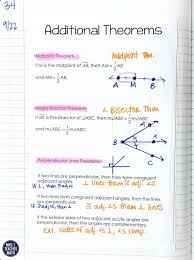 34
9/22
Additional Theorems
Midpoint Theorem
Midpoint Thm.
If M is the midpoint of AB, then AM = 1/2 AB
and MB = 1/2 AB.
A M B
Angle Bisector Theorem
∠ Bisector Thm
If BX is the bisector of ∠ABC, then m∠ABX = 1/2 m∠ABC
and m∠XBC = 1/2 m∠ABC.
A
B
X
C
Perpendicular Lines Theorems
If two lines are perpendicular, then they form congruent
adjacent angles.
⊥ lines form ≅ adj. ∠s
If two lines form congruent adjacent angles, then the lines
are perpendicular.
If the exterior sides of two adjacent acute angles are
perpendicular, then the angles are complementary.
Ext. sides of adj. ∠s ⊥, ∠s comp.